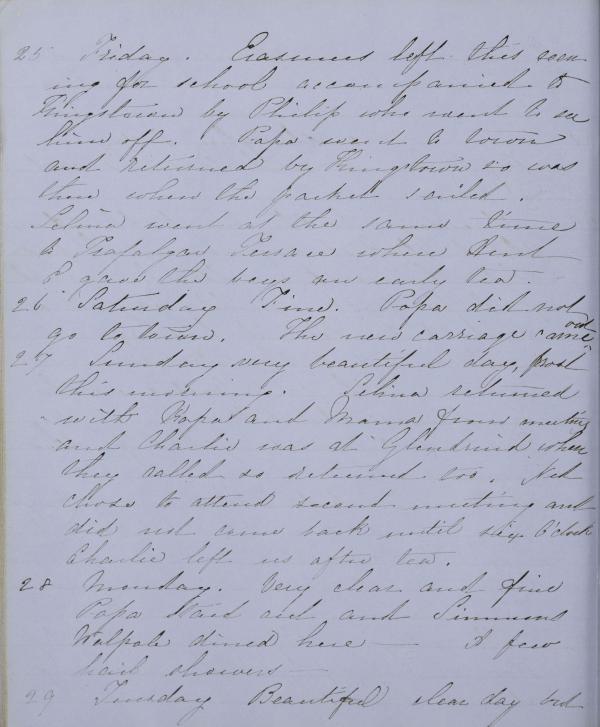 25 Friday. Erasmus left this even
ing for school accompanied to
Kingstown by Philip who went to see
him off. Papa went to town
and returned by Kingstown so was
there when the packet sailed.
Selina went at the same time
to Trafalgar Terrace where Aunt
P gave the boys an early tea.
26 Saturday Fine. Papa did not
go to town. The new carriage came out
27 Sunday very beautiful day, frost
this morning. Selina returned
with Papa and Mama from meeting
and Charlie was at Glendruid when
they called so returned too. Ned
chose to attend second meeting and
did not come back until six O'clock
Charlie left us after tea.
28 Monday. Very clear and fine
Papa staid out and Simmons
Walpole dined here — A few
hail showers —
29 Tuesday Beautiful clear day but